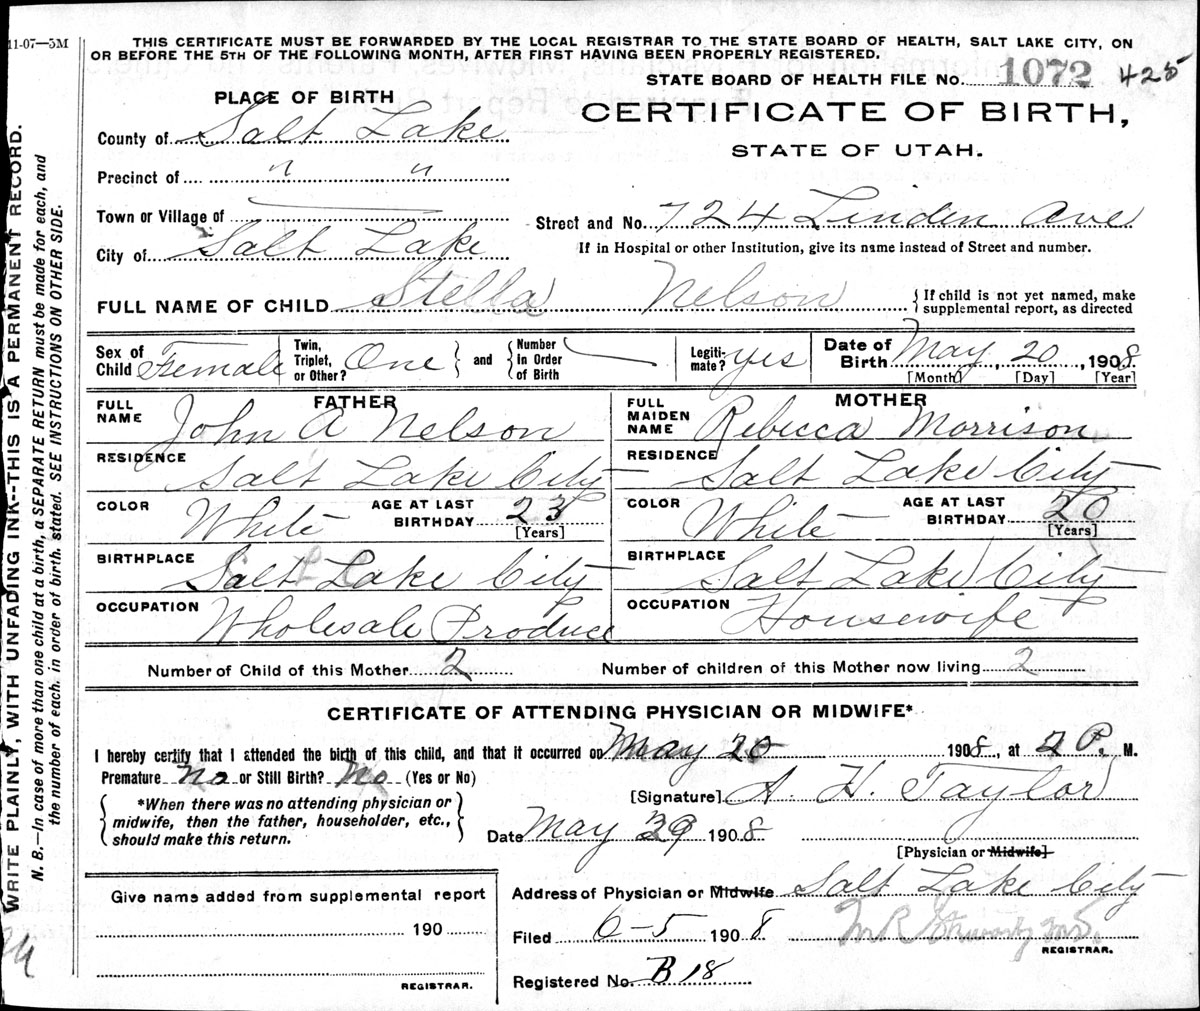 11-07—5M
THIS CERTIFICATE MUST BE FORWARDED BY THE LOCAL REGISTRAR TO THE STATE BOARD OF HEALTH, SALT LAKE CITY, ON
OR BEFORE THE 5TH OF THE FOLLOWING MONTH, AFTER FIRST HAVING BEEN PROPERLY REGISTERED.
STATE BOARD OF HEALTH FILE NO. 1072 425
PLACE OF BIRTH
CERTIFICATE OF BIRTH,
STATE OF UTAH.
County of Salt Lake
Precinct of " "
Town or Village of
Street and No. 724 Linden Ave
City of Salt Lake
If in Hospital or other Institution, give its name instead of Street and number.
FULL NAME OF CHILD Stella Nelson
{If child is not yet named, make
supplemental report, as directed
Sex of
Child Female
Twin,
Triplet,
or Other? One
and
Number
In Order
of Birth
Legiti-
mate? yes
Date of
Birth May 20, 1908
[Month] [Day] [Year]
FATHER
FULL
NAME John A Nelson
RESIDENCE Salt Lake City
COLOR White
AGE AT LAST
BIRTHDAY 23
[Years]
BIRTHPLACE Salt Lake City
OCCUPATION Wholesale Produce
MOTHER
FULL
MAIDEN
NAME Rebecca Morrison
RESIDENCE Salt Lake City
COLOR White
AGE AT LAST
BIRTHDAY 20
[Years]
BIRTHPLACE Salt Lake City
OCCUPATION Housewife
Number of Child of this Mother 2
Number of children of this Mother now living 2
CERTIFICATE OF ATTENDING PHYSICIAN OR MIDWIFE*
I hereby certify that I attended the birth of this child, and that it occurred on May 20 1908, at 2 P. M.
Premature no or Still Birth? No (Yes or No)
{*When there was no attending physician or
midwife, then the father, householder, etc.,
should make this return.}
[Signature] A. H. Taylor
Date May 29 1908
[Physician or Midwife]
Give name added from supplemental report
190
REGISTRAR.
Address of Physician or Midwife Salt Lake City
Filed 6-5 1908
M R Stewart MD.
REGISTRAR.
Registered No. B 18
WRITE PLAINLY, WITH UNFADING INK--THIS IS A PERMANENT RECORD.
N. B.—In case of more than one child at a birth, a SEPARATE RETURN must be made for each, and
the number of each, in order of birth, stated. SEE INSTRUCTIONS ON OTHER SIDE.